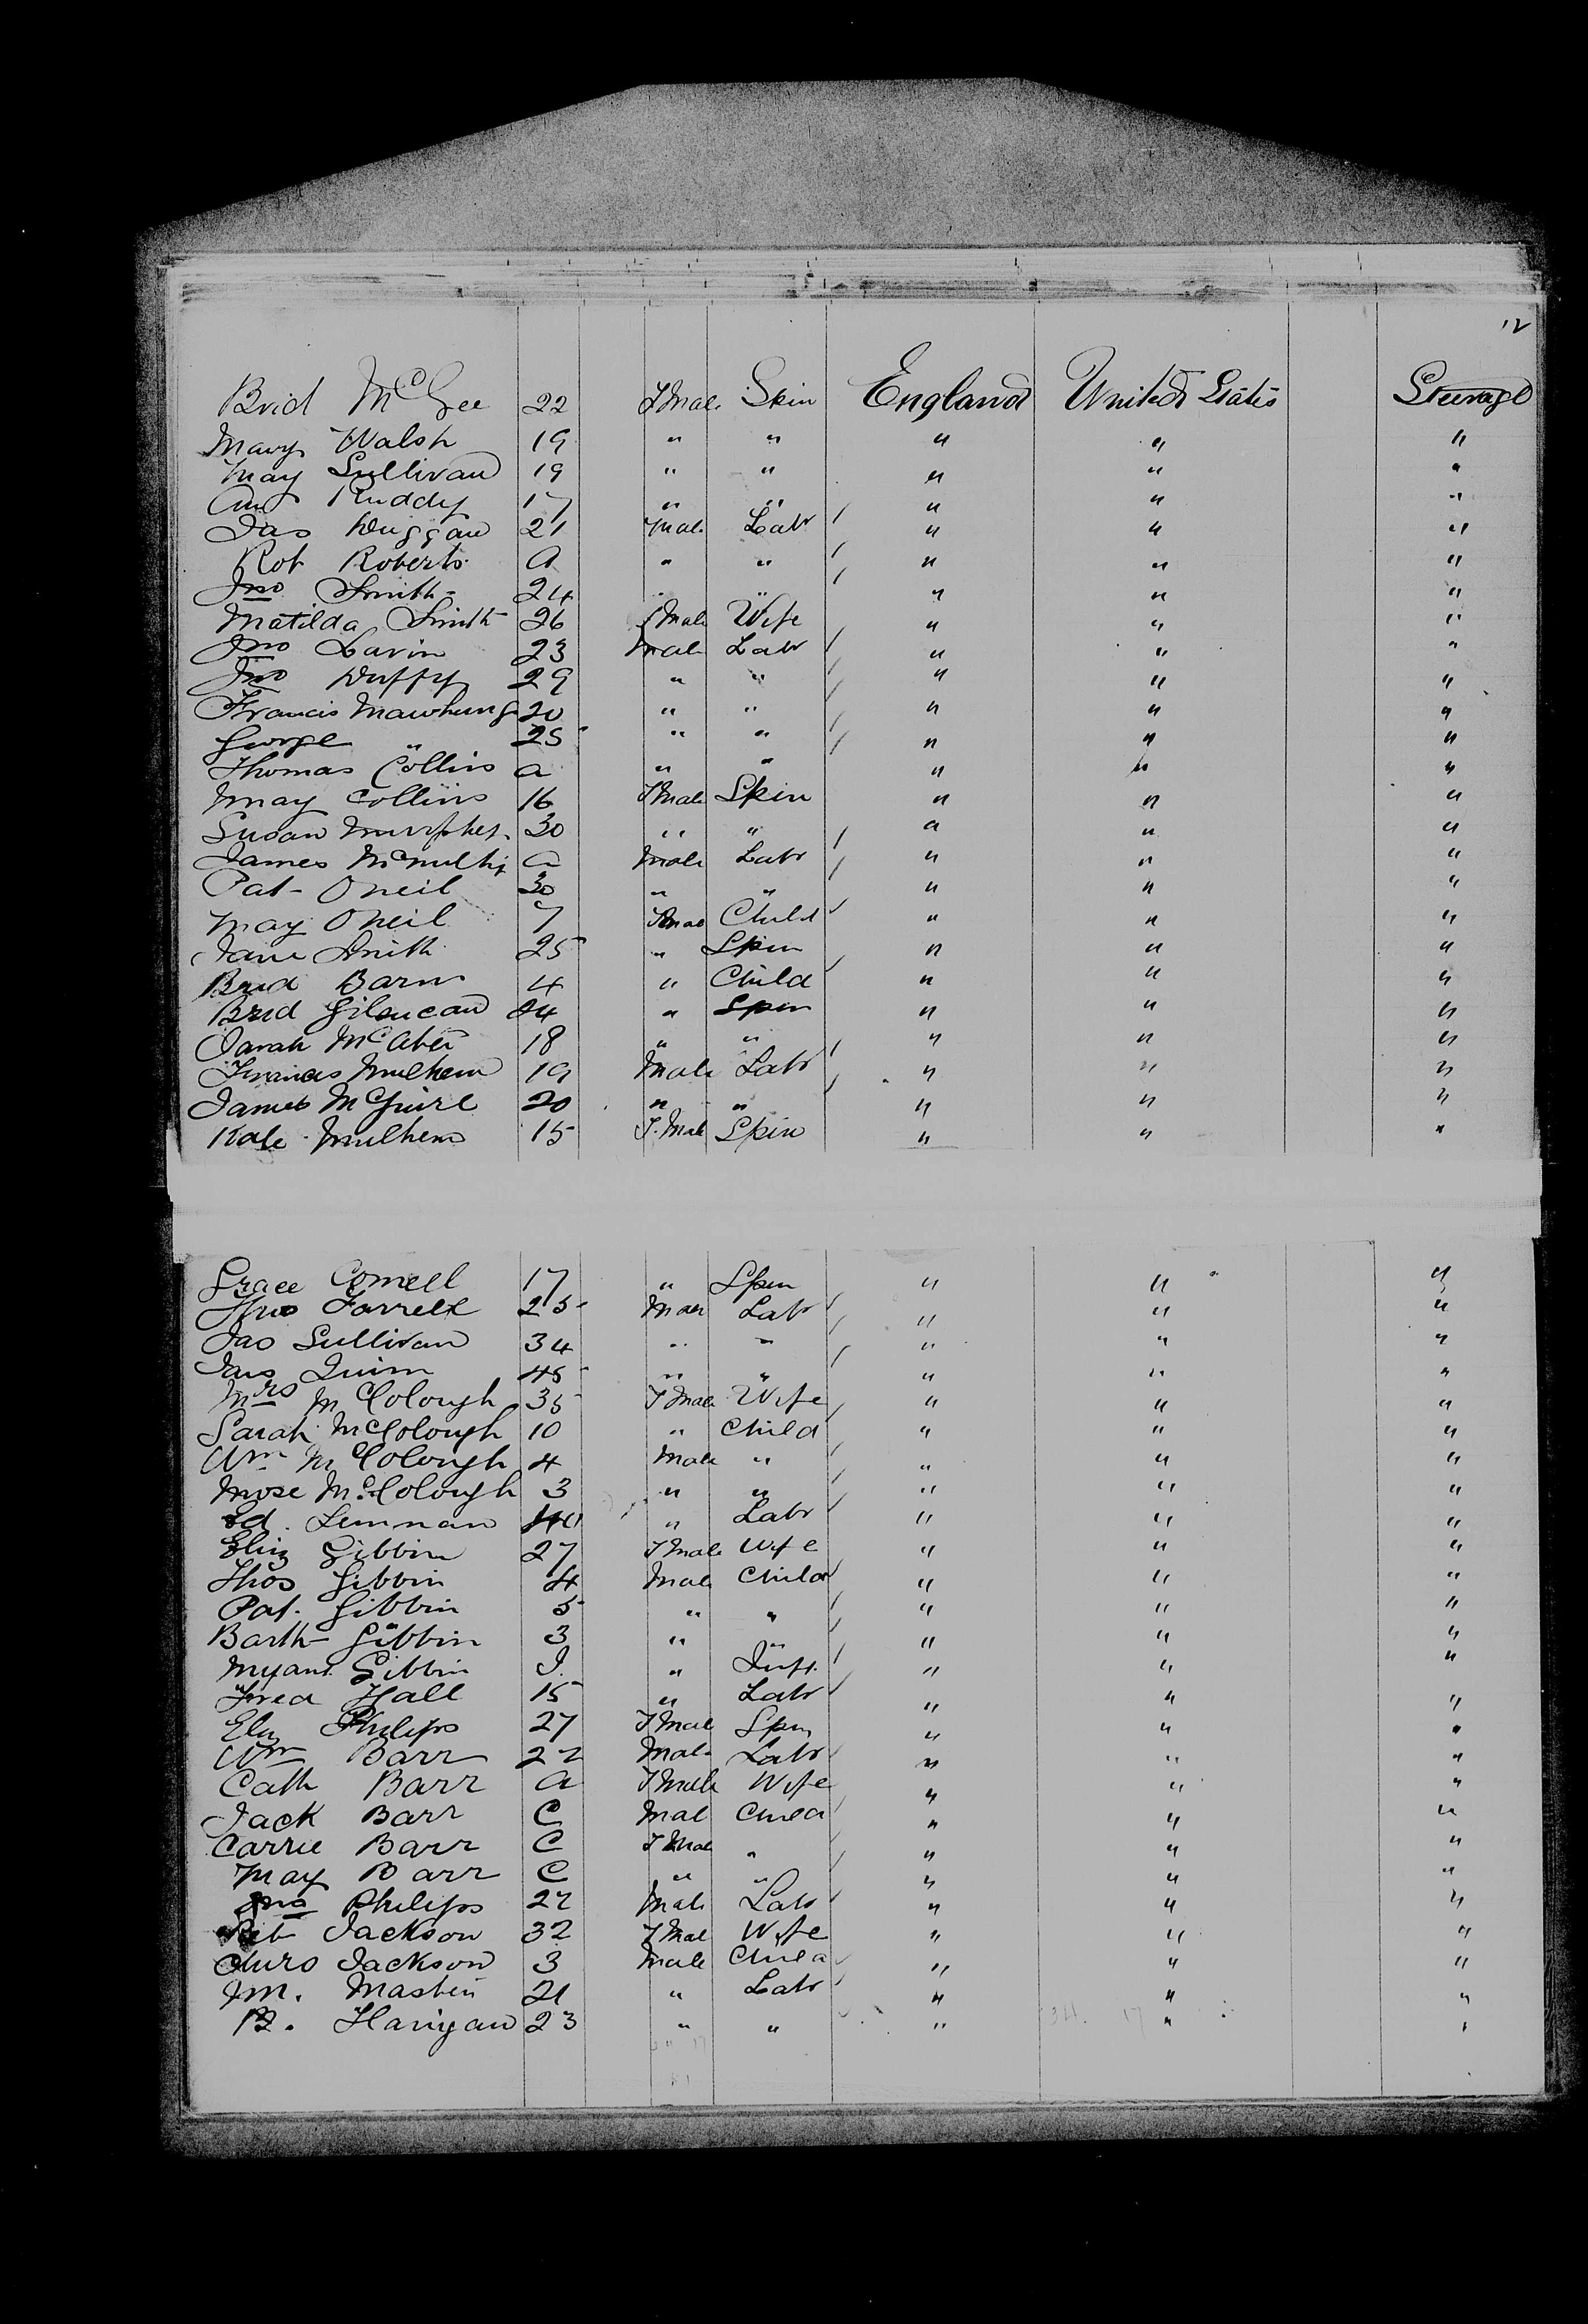 12
Brid McGee 22 Fmale Spin England United States Steerage
Mary Walsh 19 " " " " "
May Sullivan 19 " " " " "
Ann Ruddy 17 " " " " "
Jas Duggan 21 Male Labr " " "
Rob Roberts a " " " " "
Jno Smith 24 " " " " "
Matilda Smith 26 fMale Wife " " "
Jno Lavin 23 Male Labr " " "
Jno Duffy 29 " " " " "
Francis 20 " " " " "
George " 25 " " " " "
Thomas Collins a " " " " "
May Collins 16 FMale Spin " " "
Susan 30 " " " " "
James a Male Labr " " "
Pat Oneil 30 " " " " "
May Oneil 7 Child " " "
Jane Smith 25 " Spin " " "
Brid 4 " Child " " "
Brid 24 " Spin " " "
Sarah 18 " " " " "
Francis Mulhern 19 Male Labr " " "
James McGuire 20 " " " " "
Kate Mulhern 15 F.Male Spin " " "
Grace 17 " Spin " " "
Thos Farrell 25 Male Labr " " "
Jas Sullivan 34 " " " " "
Jas Quinn 45 " " " " "
Mrs McColough 35 FMale Wife " " "
Sarah McColough 10 " Child " " "
Wm McColough 4 Male " " " "
Mose McColough 3 " " " " "
Ed. " Labr " " "
Eliz Gibbin 27 FMale Wife " " "
Thos Gibbin 4 Male Child " " "
Pat. Gibbin 5 " " " " "
Barth Gibbin 3 " " " " "
Gibbin " Inft. " " "
Fred Hall 15 " Labr " " "
Eliz Philips 27 FMale Spin " " "
Wm Barr 27 Male Labr " " "
Cath Barr a FMale Wife " " "
Jack Barr C Mal Child " " "
Carrie Barr C FMale " " " "
May Barr C " " " " "
Jno Philips 27 Male Labr " " "
Jackson 32 FMal Wife " " "
Jackson 3 Male Child " " "
Jm. 21 " Labr " " "
23 " " " " "